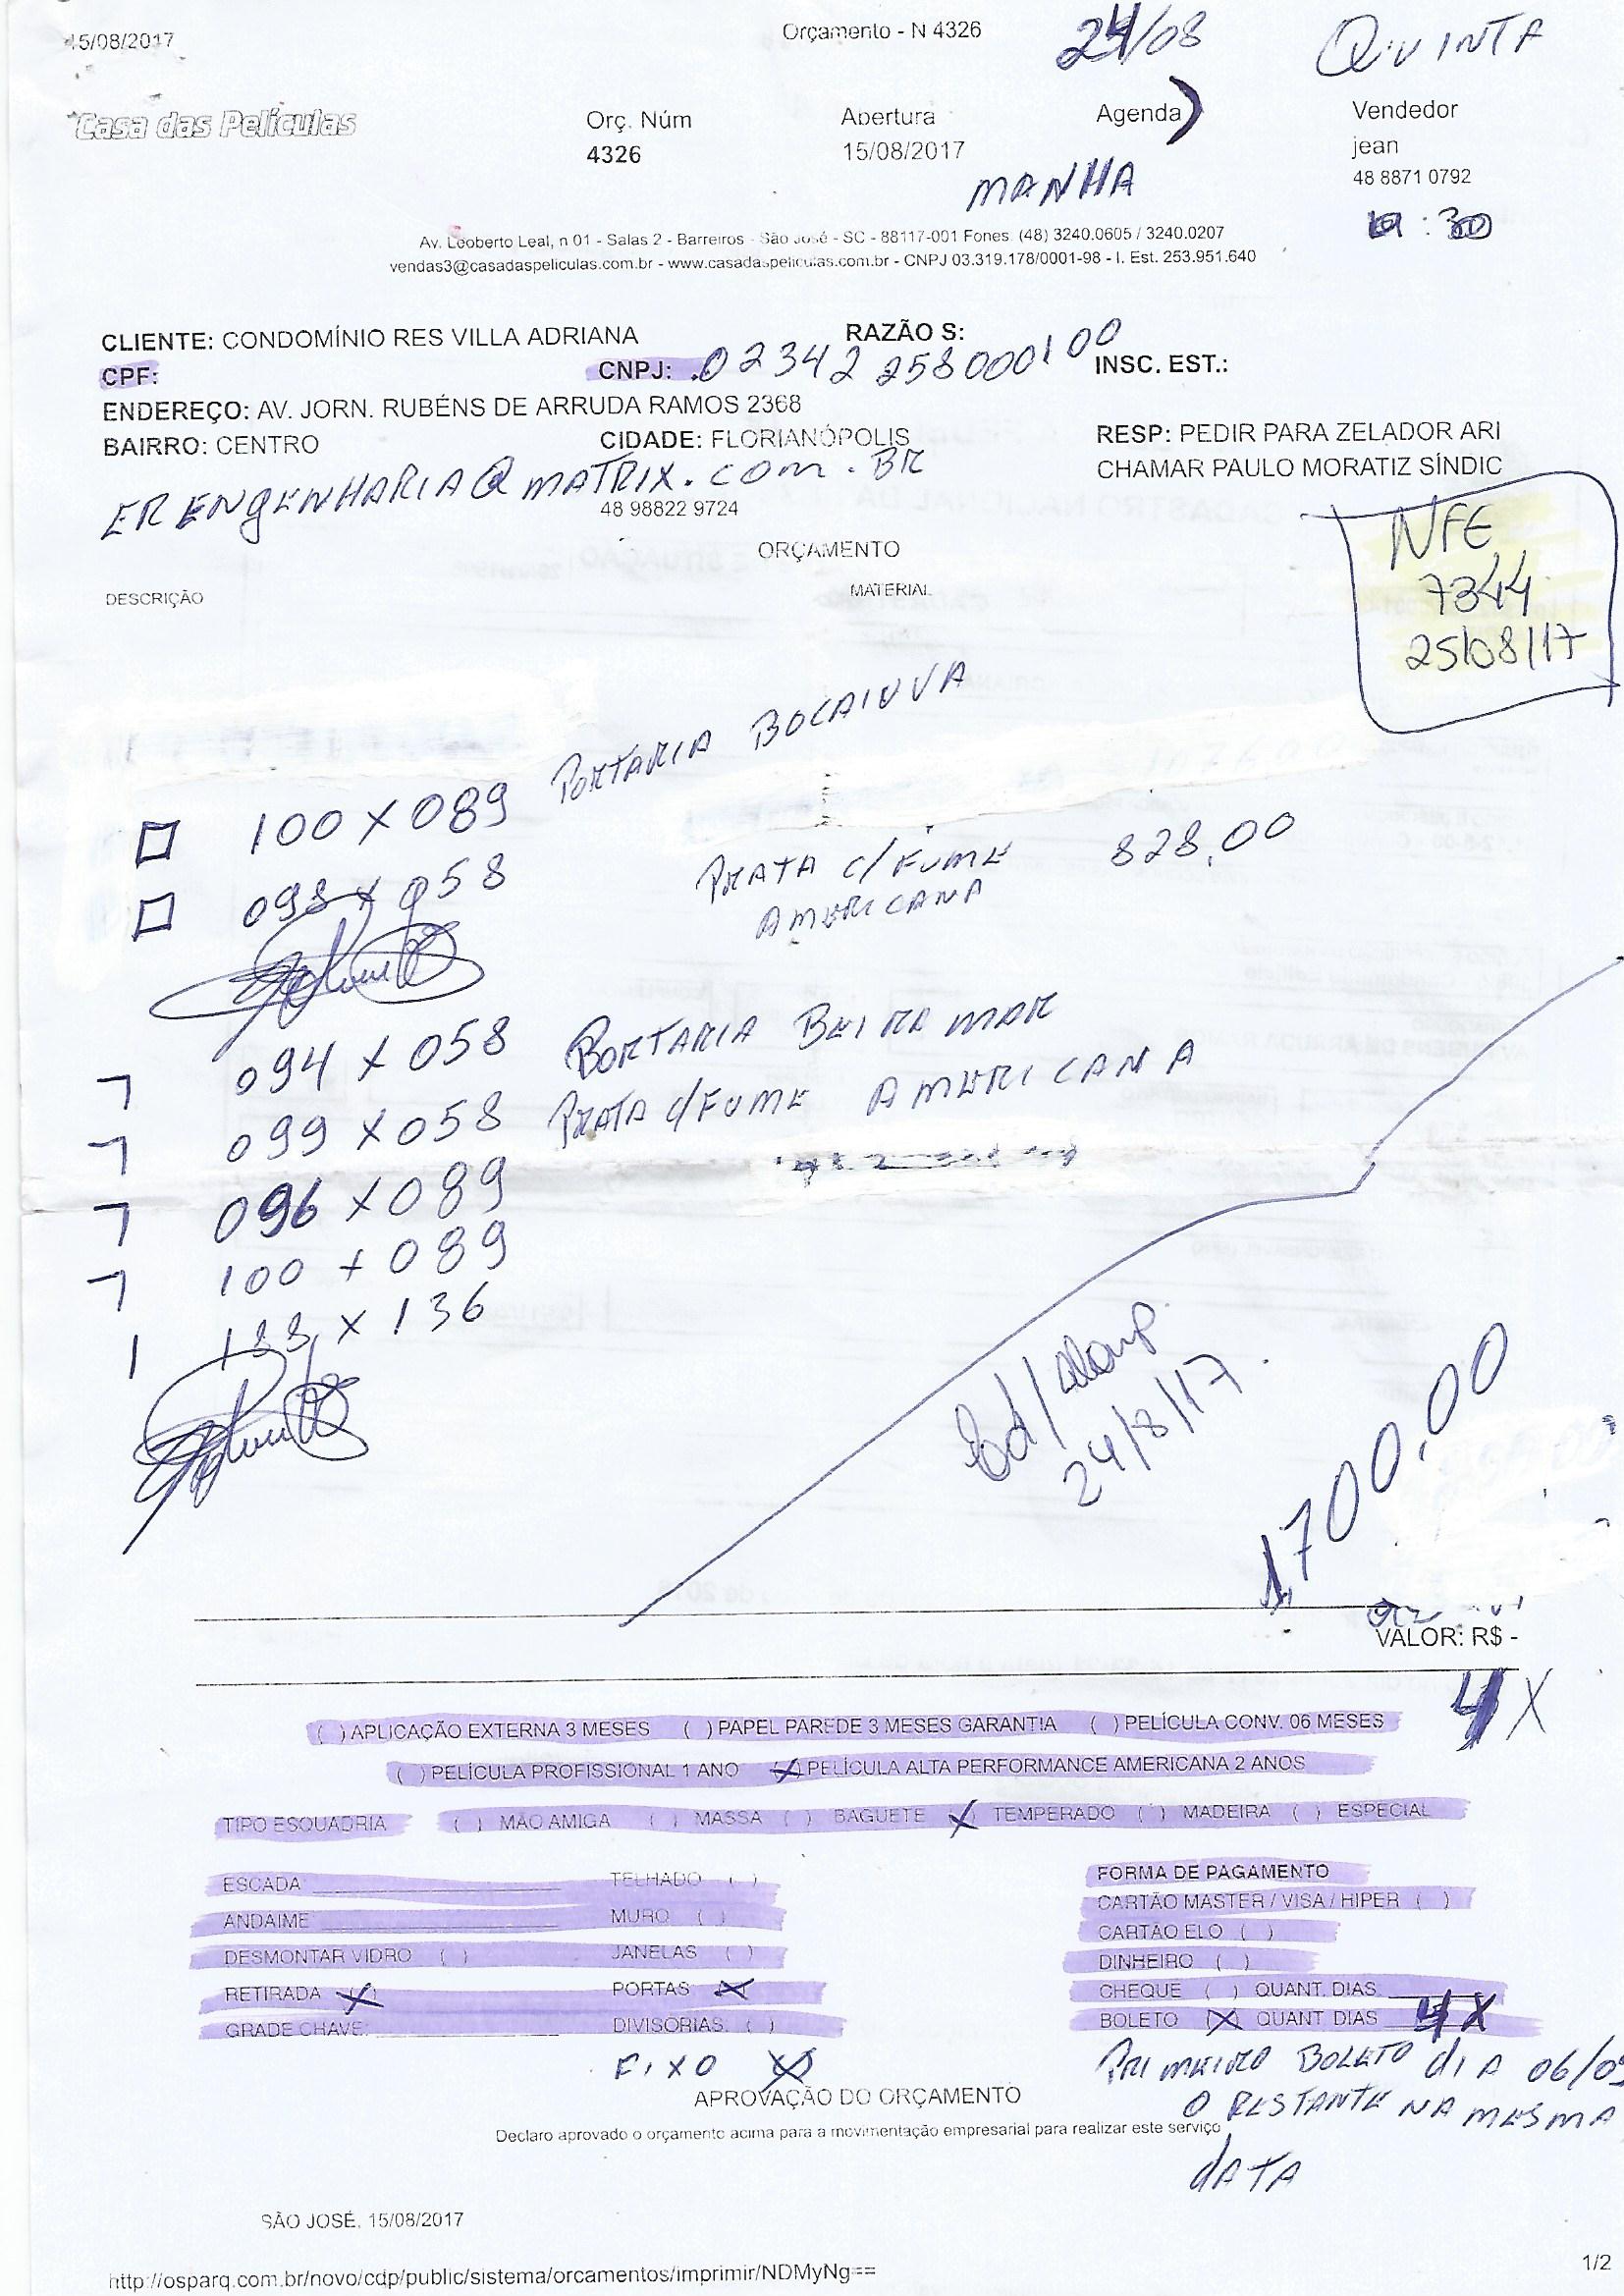 15/08/2017
Orçamento - N 4326
24/08 QUINTA
Casa das Películas
Orç. Núm Abertura Agenda Vendedor
4326 15/08/2017 jean
MANHA 48 8871 0792
Av. Leoberto Leal, n 01 - Salas 2 - Barreiros - São José - SC - 88117-001 Fones: (48) 3240.0605 / 3240.0207
vendas3@casadaspeliculas.com.br - www.casadaspeliculas.com.br - CNPJ 03.319.178/0001-98 - I. Est. 253.951.640
CLIENTE: CONDOMÍNIO RES VILLA ADRIANA RAZÃO S:
CPF: CNPJ: 02342258000100 INSC. EST.:
ENDEREÇO: AV. JORN. RUBÉNS DE ARRUDA RAMOS 2368
BAIRRO: CENTRO CIDADE: FLORIANÓPOLIS RESP: PEDIR PARA ZELADOR ARI
CHAMAR PAULO MORATIZ SÍNDIC
ERENGENHARIA@MATRIX.COM.BR
48 98822 9724
NFE
7344
25/08/17
ORÇAMENTO
DESCRIÇÃO MATERIAL
100 X 089 PORTARIA BOCAIUVA
098 X 058 PRATA C/FUME 828,00
AMERICANA
094 X 058 PORTARIA BEIRA MAR
099 X 058 PRATA C/FUME AMERICANA
096 X 089
100 X 089
133 X 136
24/8/17.
1,700,00
VALOR: R$ -
4X
( ) APLICAÇÃO EXTERNA 3 MESES ( ) PAPEL PAREDE 3 MESES GARANTIA ( ) PELÍCULA CONV. 06 MESES
( ) PELÍCULA PROFISSIONAL 1 ANO (X) PELÍCULA ALTA PERFORMANCE AMERICANA 2 ANOS
TIPO ESQUADRIA ( ) MÃO AMIGA ( ) MASSA ( ) BAGUETE (X) TEMPERADO ( ) MADEIRA ( ) ESPECIAL
ESCADA TELHADO ( ) FORMA DE PAGAMENTO
ANDAIME MURO ( ) CARTÃO MASTER / VISA / HIPER ( )
DESMONTAR VIDRO ( ) JANELAS ( ) CARTÃO ELO ( )
DINHEIRO ( )
RETIRADA (X) PORTAS (X) CHEQUE ( ) QUANT. DIAS
GRADE CHAVE: DIVISÓRIAS: ( ) BOLETO (X) QUANT DIAS 4X
FIXO (X) PRIMEIRO BOLETO DIA 06/09
O RESTANTE NA MESMA
DATA
APROVAÇÃO DO ORÇAMENTO
Declaro aprovado o orçamento acima para a movimentação empresarial para realizar este serviço
SÃO JOSÉ, 15/08/2017
http://osparq.com.br/novo/cdp/public/sistema/orcamentos/imprimir/NDMyNg== 1/2